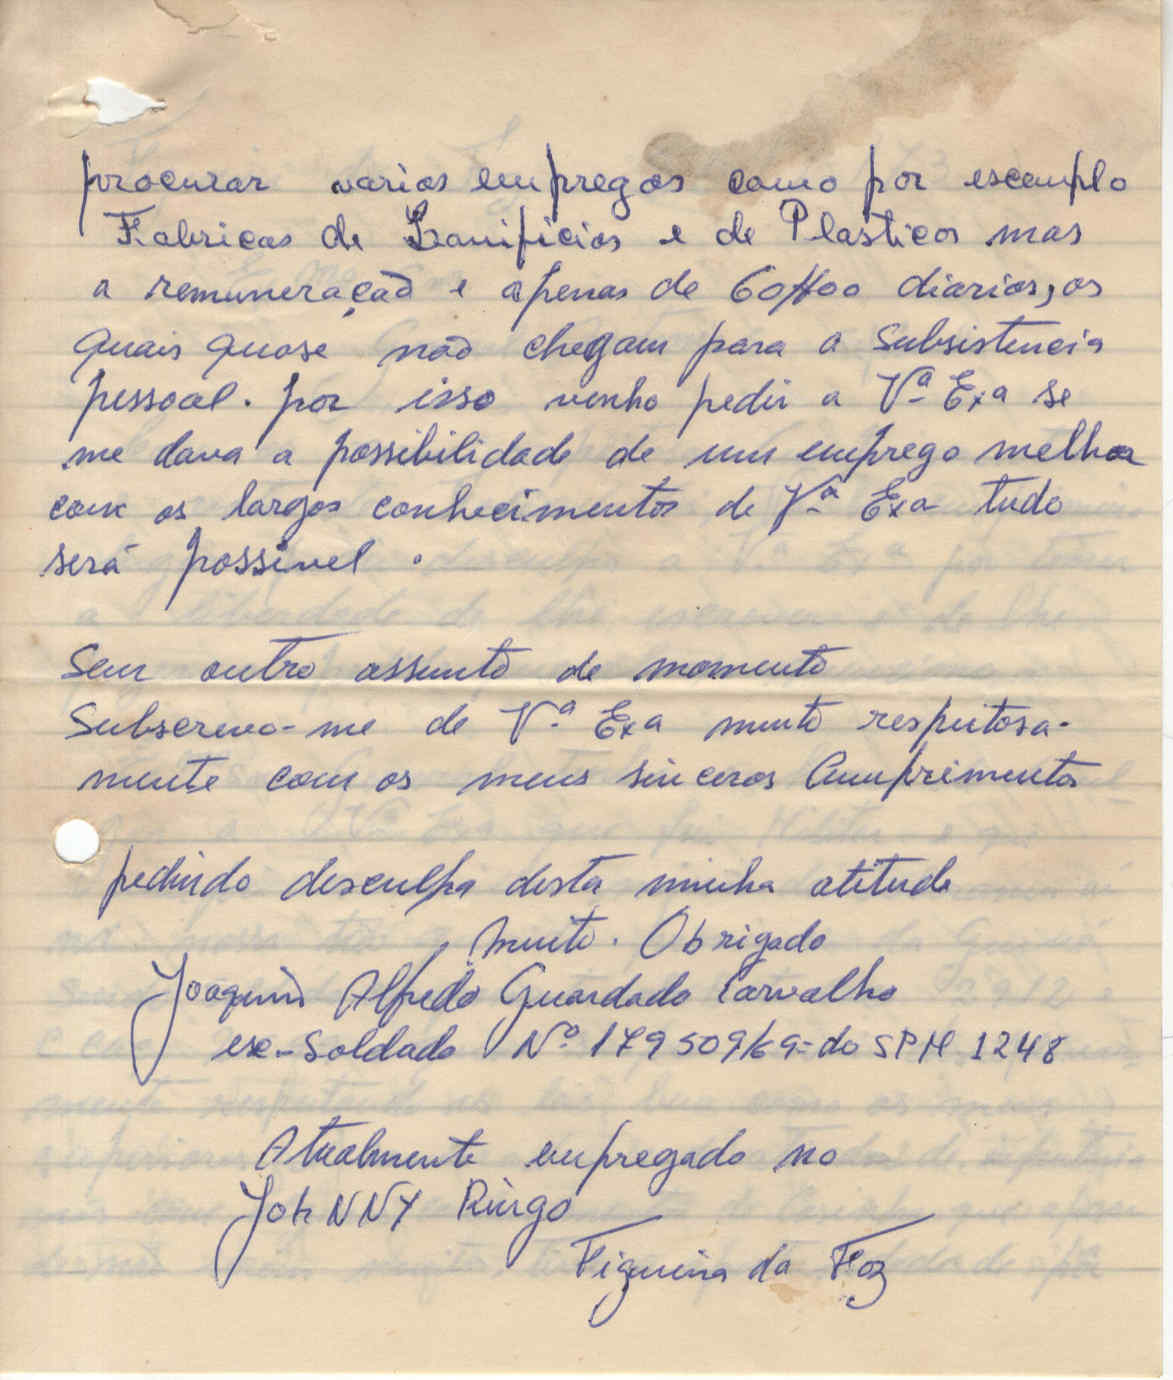 procurar varios empregos como por escemplo
Fabricas de Lanificios e de Plasticos mas
a remuneração e apenas de 60$00 diarios, os
quais quase não chegam para a Subsistencia
pessoal. por isso venho pedir a Vª Exª se
me dava a possibilidade de um emprego melhor
com os largos conhecimentos de Vª Exª tudo
será possivel .
Sem outro assunto de momento
Subscrevo-me de Vª Exª muito respeitosa-
mente com os meus sinceros Cumprimentos
pedindo desculpa desta minha atitude
Muito. Obrigado
Joaquim Alfredo Guardado Carvalho
exe-Soldado Nº 179509/69-do SPM 1248
Atualmente empregado no
JohNNY Ringo
Figueira da Foz